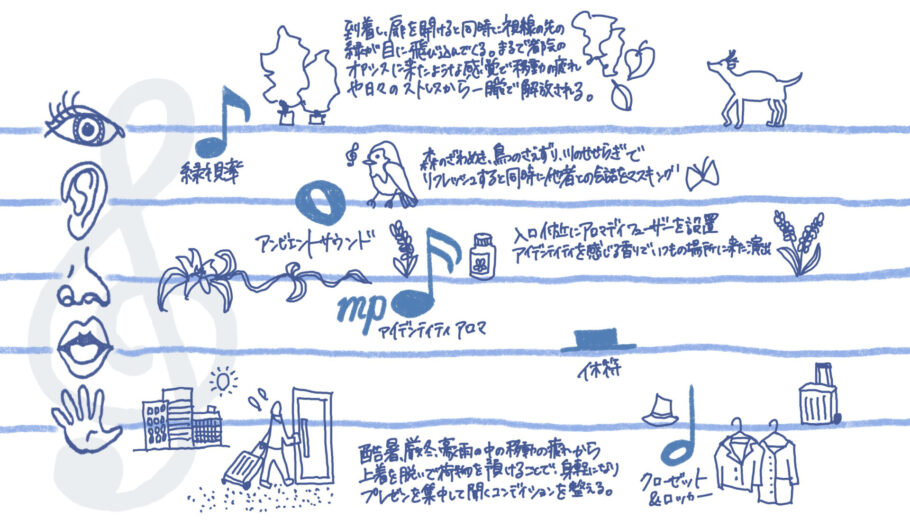 到着し、扉を開けると同時に視線の先の
緑が目に飛び込んでくる。まるで都会の
オアシスに来たような感覚で移動の疲れ
や日々のストレスから一瞬で解放される。
緑視率
森のざわめき、鳥のさえずり、川のせせらぎで
リフレッシュすると同時に他者との会話をマスキング
アンビエントサウンド
入口付近にアロマディフューザーを設置
アイデンティティを感じる香りでいつもの場所に来た演出
mp
アイデンティティ アロマ
休符
酷暑、厳冬、豪雨の中の移動の疲れから
上着を脱いで荷物を預けることで、身軽になり
プレゼンを集中して聞くコンディションを整える。
クローゼット
&ロッカー